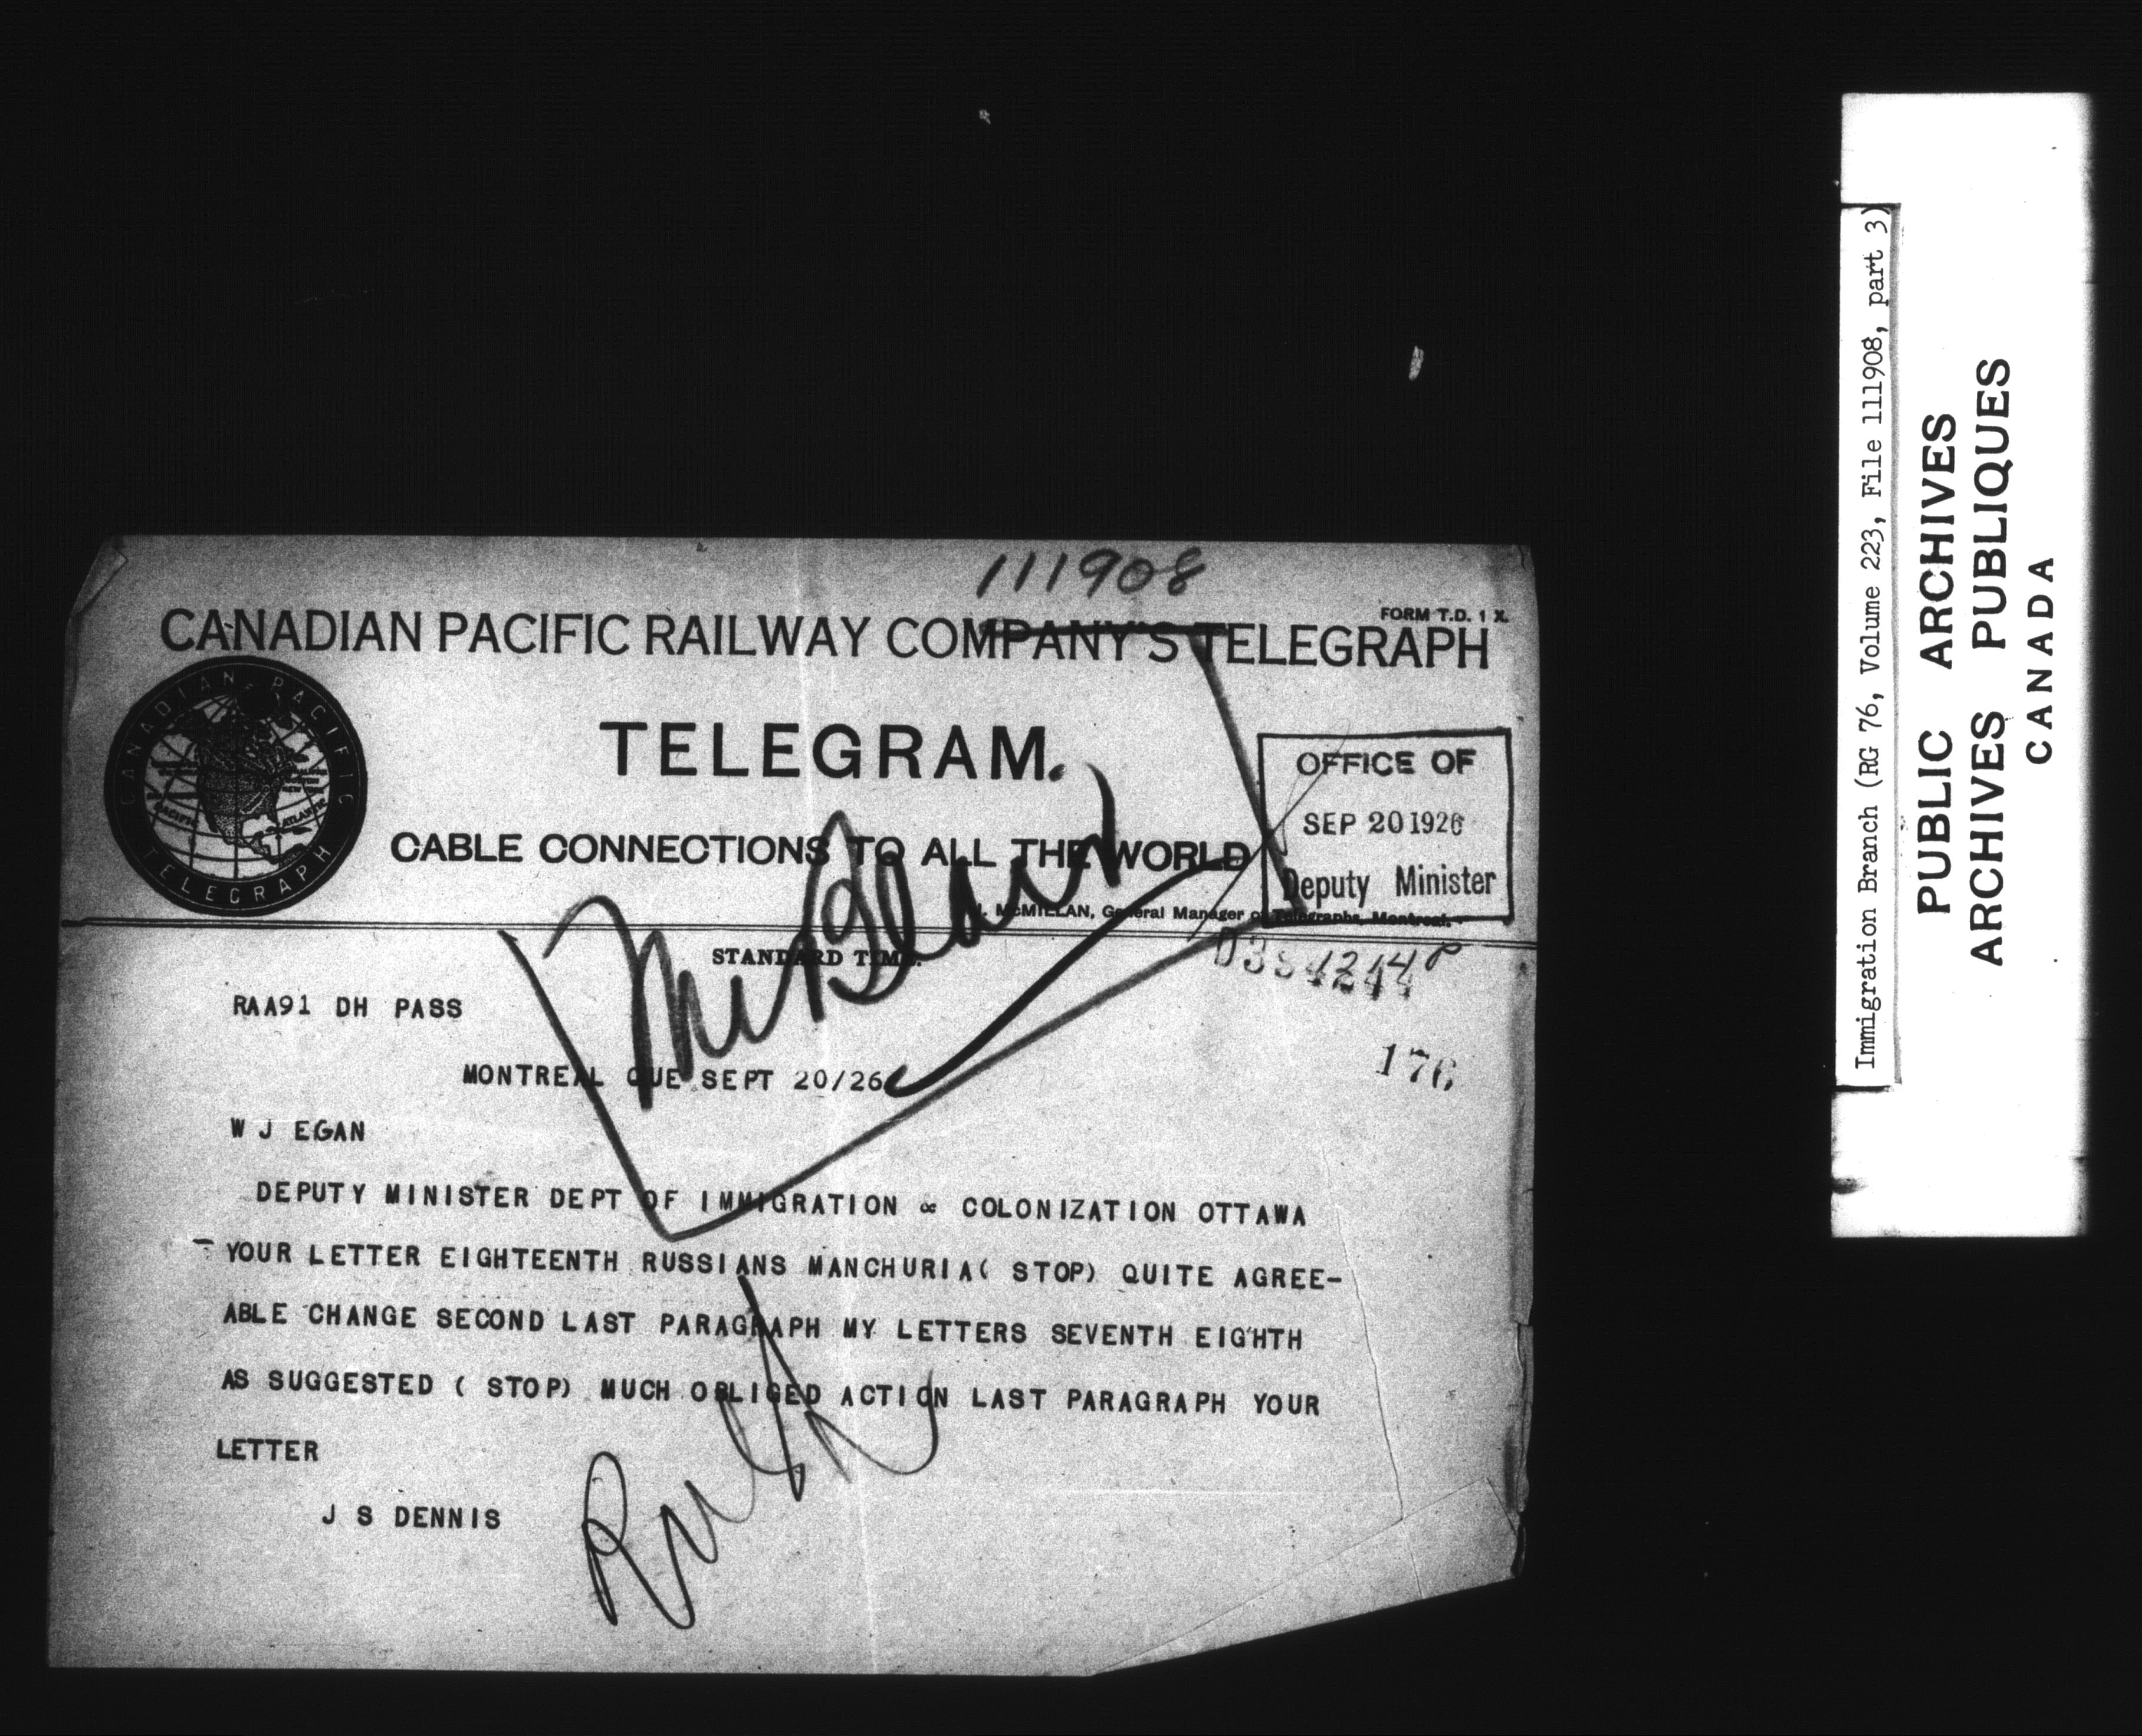 111908
FORM T.D. 1 X.
CANADIAN PACIFIC RAILWAY COMPANY'S TELEGRAPH
CANADIAN PACIFIC
TELEGRAPH
PACIFIC
ATLANTIC
TELEGRAM.
CABLE CONNECTIONS TO ALL THE WORLD
McMILLAN, General Manager of Telegraphs, Montreal.
OFFICE OF
SEP 20 1926
Deputy Minister
STANDARD TIME.
RAA91 DH PASS
176
MONTREAL QUE SEPT 20/26
W J EGAN
DEPUTY MINISTER DEPT OF IMMIGRATION & COLONIZATION OTTAWA
YOUR LETTER EIGHTEENTH RUSSIANS MANCHURIA( STOP) QUITE AGREE-
ABLE CHANGE SECOND LAST PARAGRAPH MY LETTERS SEVENTH EIGHTH
AS SUGGESTED ( STOP) MUCH OBLIGED ACTION LAST PARAGRAPH YOUR
LETTER
J S DENNIS
Rush
Immigration Branch (RG 76, Volume 223, File 111908, part 3)
PUBLIC ARCHIVES
ARCHIVES PUBLIQUES
CANADA